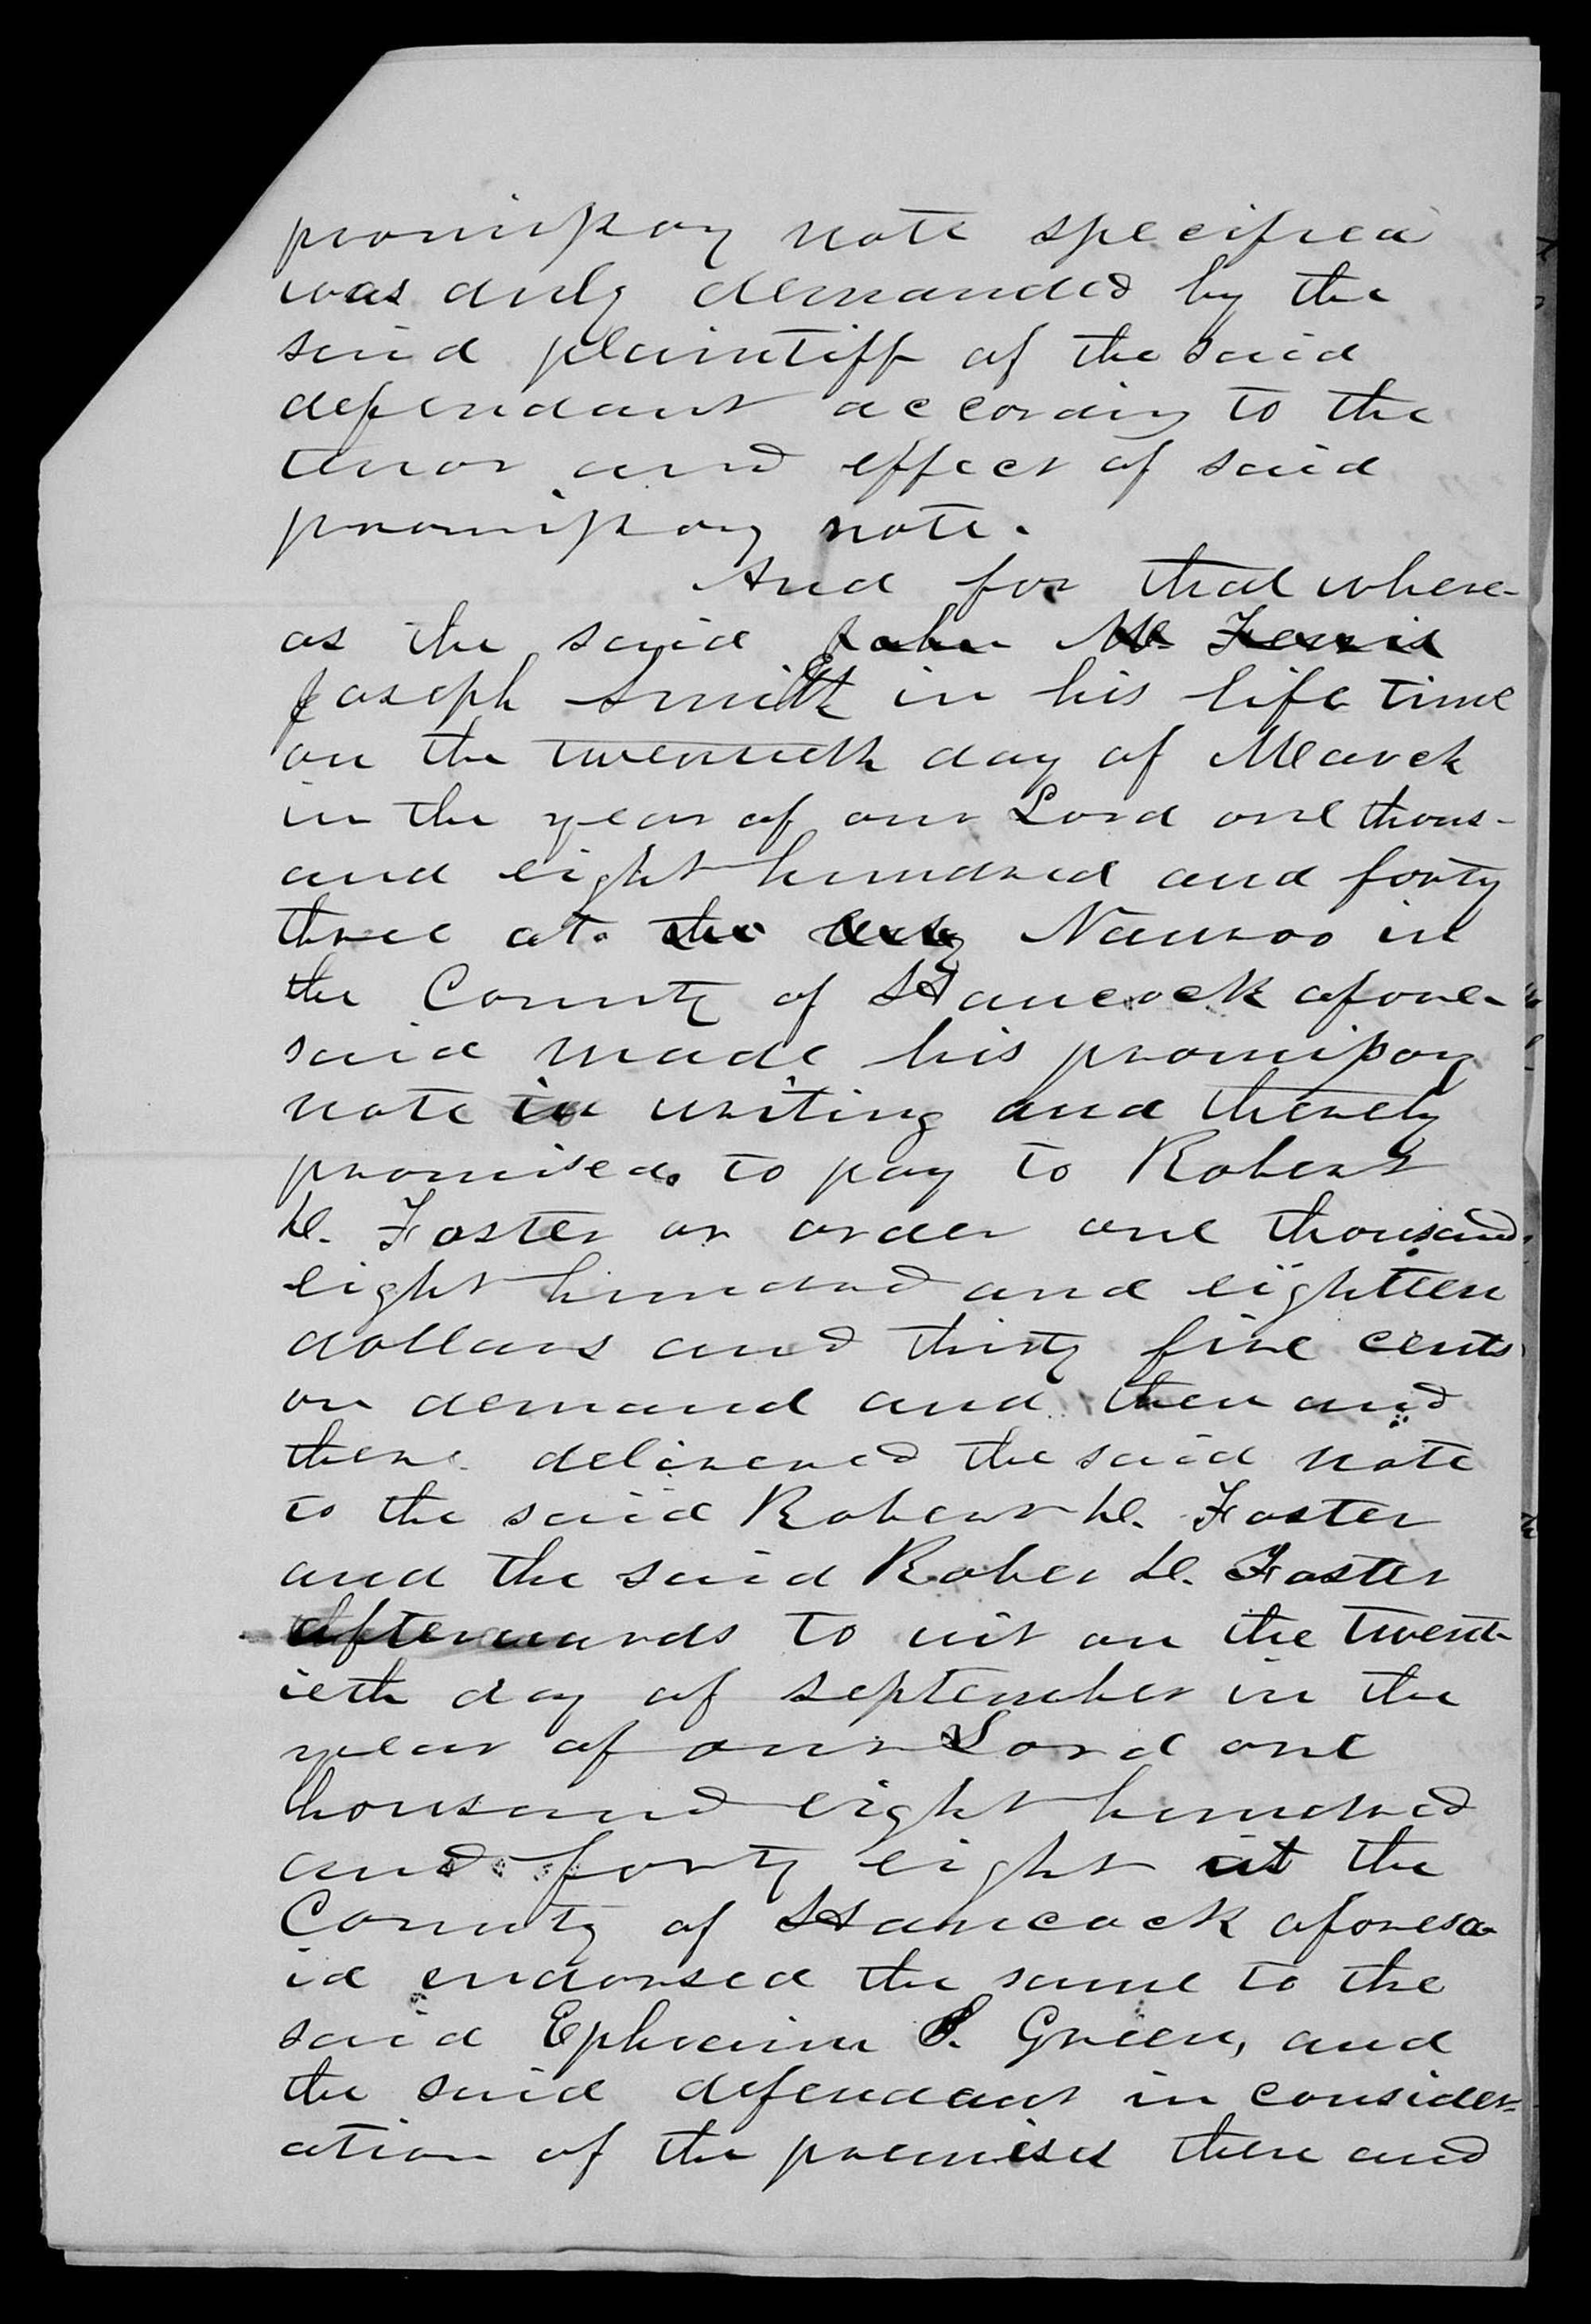 promissory note specified
was duly demanded by the
said plaintiff of the said
defendant according to the
tenor and effect of said
promissory note.
And for that where-
as the said John M. Ferris
Joseph Smith in his life time
on the twentieth day of March
in the year of our Lord one thous-
and eight hundred and forty
three at the City Nauvoo in
the County of Hancock afore-
said made his promissory
note in writing and thereby
promised to pay to Robert
D. Foster or order one thousand
eight hundred and eighteen
dollars and thirty five cents
on demand and then and
there delivered the said note
to the said Robert D. Foster
and the said Rober D. Foster
afterwards to wit on the twent-
ieth day of September in the
year of our Lord one
thousand eight hundred
and forty eight at the
County of Hancock aforesa
id endorsed the same to the
said Ephraim S. Green, and
the said defendant in consider=
ation of the premises there and